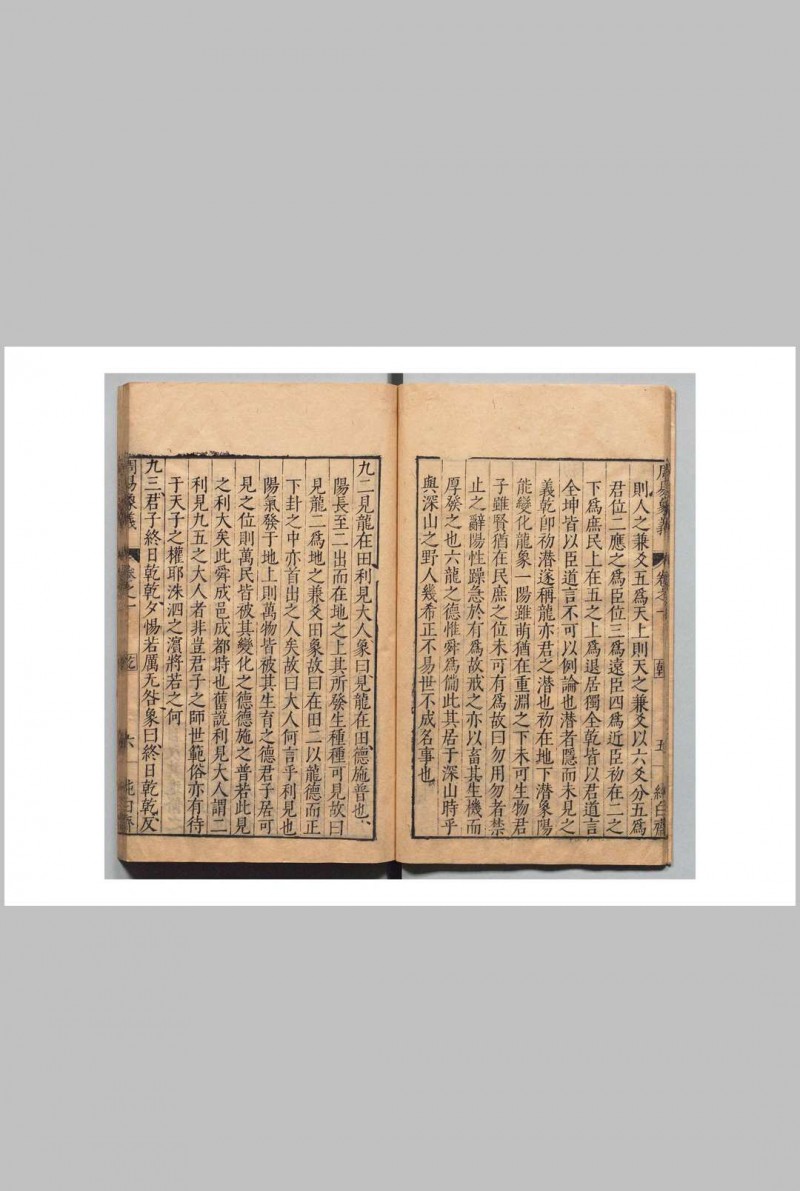 周易象義 卷之一 乾 五 純白齋
則人之兼爻五爲天上則天之兼爻以六爻分五爲
君位二應之爲臣位三爲遠臣四爲近臣初在二之
下爲庶民上在五之上爲退居獨全乾皆以君道言
全坤皆以臣道言不可以例論也潛者隱而未見之
義乾卽初潛遂稱龍亦君之潛也初在地下潛象陽
能變化龍象一陽雖萌猶在重淵之下未可生物君
子雖賢猶在民庶之位未可有爲故曰勿用勿者禁
止之辭陽性躁急於有爲故戒之亦以畜其生機而
厚發之也六龍之德惟舜爲備此其居于深山時乎
與深山之野人幾希正不易世不成名事也
九二見龍在田利見大人象曰見龍在田德施普也
陽長至二出而在地之上其所發生種種可見故曰
見龍二爲地之兼爻田象故曰在田二以龍德而正
下卦之中亦首出之人矣故曰大人何言乎利見也
陽氣發于地上則萬物皆被其生育之德君子居可
見之位則萬民皆被其變化之德德施之普若此見
之利大矣此舜成邑成都時也舊說利見大人謂二
利見九五之大人者非豈君子之師世範俗亦有待
于天子之權耶洙泗之濱將若之何
九三君子終日乾乾夕惕若厲无咎象曰終日乾乾反
周易象義 卷之一 乾 六 純白齋